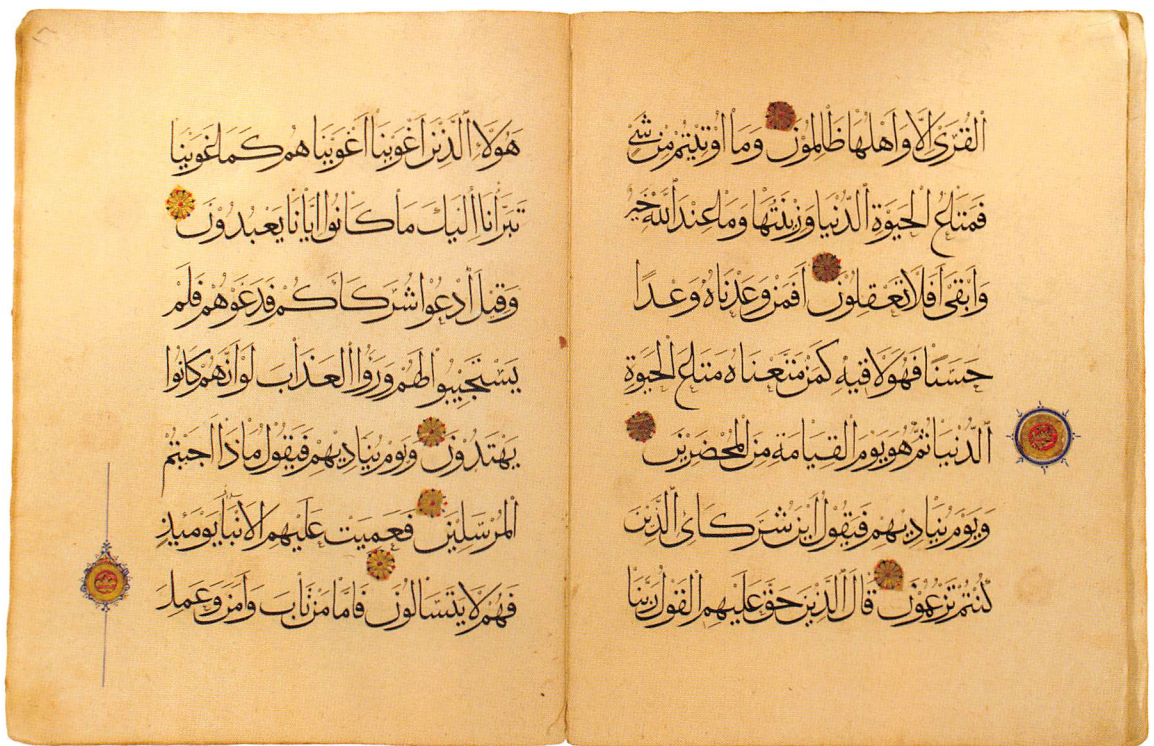 ٱلْقُرَىٰ إِلَّا وَأَهْلُهَا ظَالِمُونَ وَمَا أُوتِيتُمْ مِنْ شَيْءٍ
فَمَتَاعُ الْحَيَوةِ الدُّنْيَا وَزِينَتُهَا وَمَا عِنْدَ اللَّهِ خَيْرٌ
وَأَبْقَىٰ أَفَلَا تَعْقِلُونَ أَفَمَنْ وَعَدْنَاهُ وَعْدًا
حَسَنًا فَهُوَ لَاقِيهِ كَمَنْ مَتَّعْنَاهُ مَتَاعَ الْحَيَوةِ
الدُّنْيَا ثُمَّ هُوَ يَوْمَ الْقِيَامَةِ مِنَ الْمُحْضَرِينَ
وَيَوْمَ يُنَادِيهِمْ فَيَقُولُ أَيْنَ شُرَكَاىَ الَّذِينَ
كُنْتُمْ تَزْعُمُونَ قَالَ الَّذِينَ حَقَّ عَلَيْهِمُ الْقَوْلُ رَبَّنَا
هَؤُلَاءِ الَّذِينَ أَغْوَيْنَا أَغْوَيْنَاهُمْ كَمَا غَوَيْنَا
تَبَرَّأْنَا إِلَيْكَ مَا كَانُوا إِيَّانَا يَعْبُدُونَ
وَقِيلَ ادْعُوا شُرَكَاءَكُمْ فَدَعَوْهُمْ فَلَمْ
يَسْتَجِيبُوا لَهُمْ وَرَأَوُا الْعَذَابَ لَوْ أَنَّهُمْ كَانُوا
يَهْتَدُونَ وَيَوْمَ يُنَادِيهِمْ فَيَقُولُ مَاذَا أَجَبْتُمُ
الْمُرْسَلِينَ فَعَمِيَتْ عَلَيْهِمُ الْأَنْبَاءُ يَوْمَئِذٍ
فَهُمْ لَا يَتَسَاءَلُونَ فَأَمَّا مَنْ تَابَ وَآمَنَ وَعَمِلَ